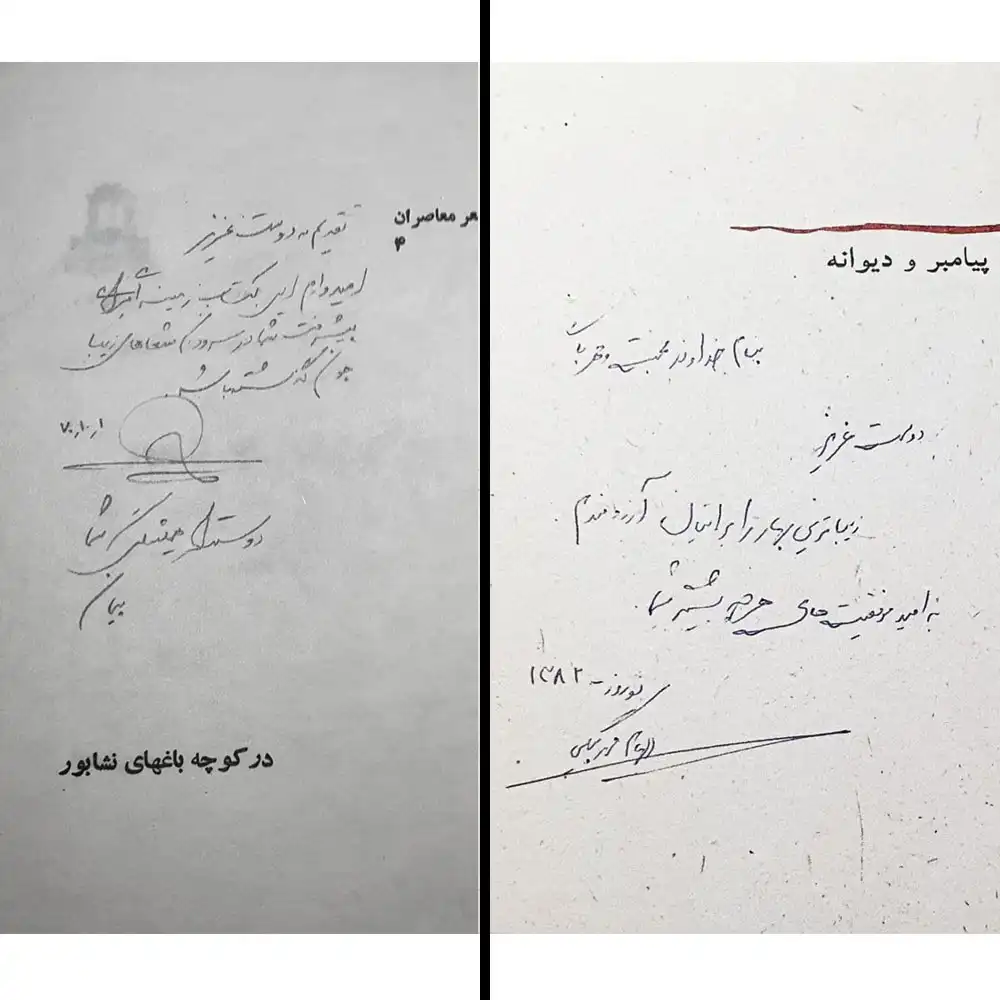 عر معاصران
۴
تقدیم به دوست عزیز
امیدوارم این کتاب زمینه
پیشرفت شما در سرودن شعرهای زیبا
چون گذشته باشد
۷۰٫۱۰٫۱
دوستدار همیشگی شما
پیمان
در کوچه باغهای نشابور
پیامبر و دیوانه
بنام خداوند محبت و
دوست عزیز
زیباترین بهار را برایتان آرزومندم
به امید موفقیت های هرچه بیشتر شما
نوروز - ۱۳۸۲
الهام